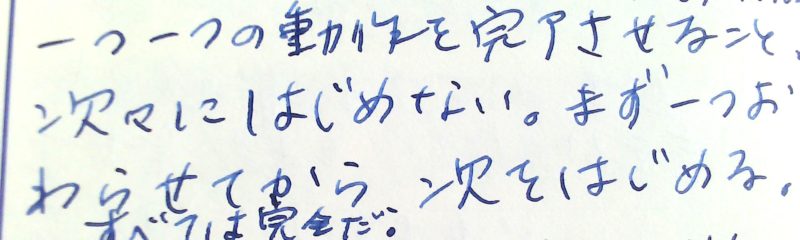 一つ一つの動作を完了させること、
次々にはじめない。まず一つお
わらせてから次をはじめる。
すべては完全だ。